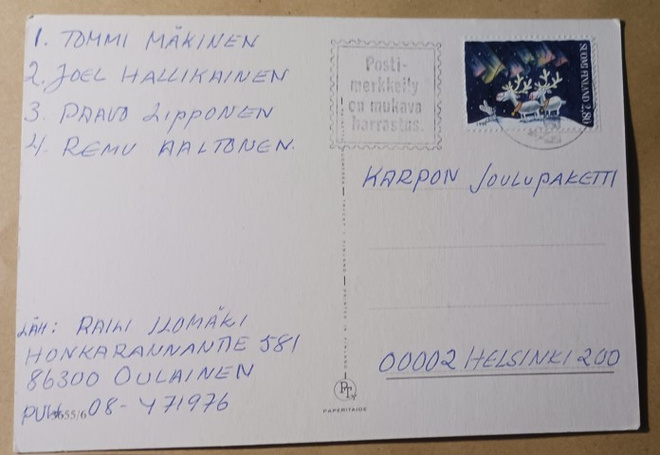 1. TOMMI MÄKINEN
2. JOEL HALLIKAINEN
3 PAAVO LIPPONEN
4. REMU AALTONEN.
Posti-
merkkeily
on mukava
harrastus.
SUOMI FINLAND 2,80
KARPON JOULUPAKETTI
00002 HELSINKI 200
LÄH: RAILI ILOMÄKI
HONKARANNANTIE 581
86300 OULAINEN
PUH. 08-471976
3655/6
PT
PAPERITAIDE